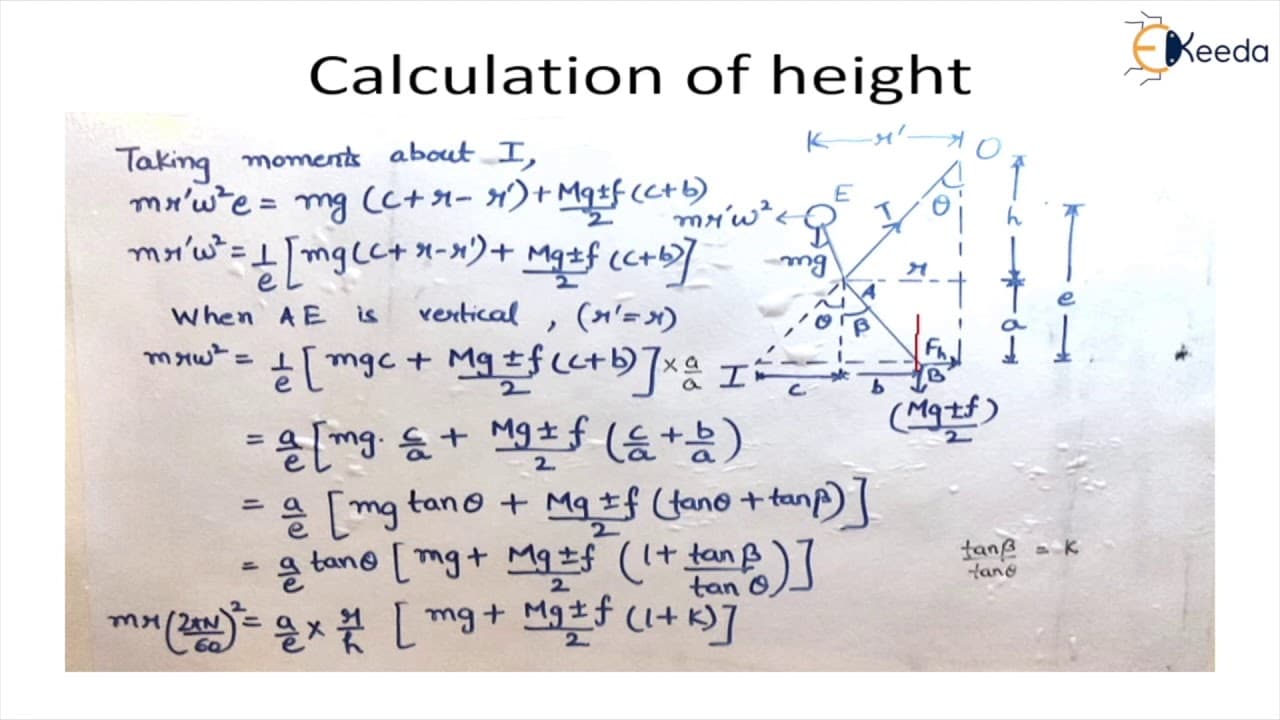 EKeeda
Calculation of height
Taking moments about I,
mr'ω²e = mg (c+r-r')+ Mg±f/2 (c+b)
mr'ω² = 1/e [mg(c+r-r')+ Mg±f/2 (c+b)]
When AE is vertical , (r'=r)
mrω² = 1/e [mgc + Mg±f/2 (c+b)] × a/a
= a/e [mg. c/a + Mg±f/2 (c/a + b/a)
= a/e [mg tanθ + Mg±f/2 (tanθ + tanβ)]
= a/e tanθ [mg+ Mg±f/2 (1+ tanβ/tanθ)]
mr(2πN/60)² = a/e × r/h [mg+ Mg±f/2 (1+K)]
r' O
E
mr'ω² T θ h
mg r
A e
θ β a
Fh
I c b B
(Mg±f/2)
tanβ/tanθ = K